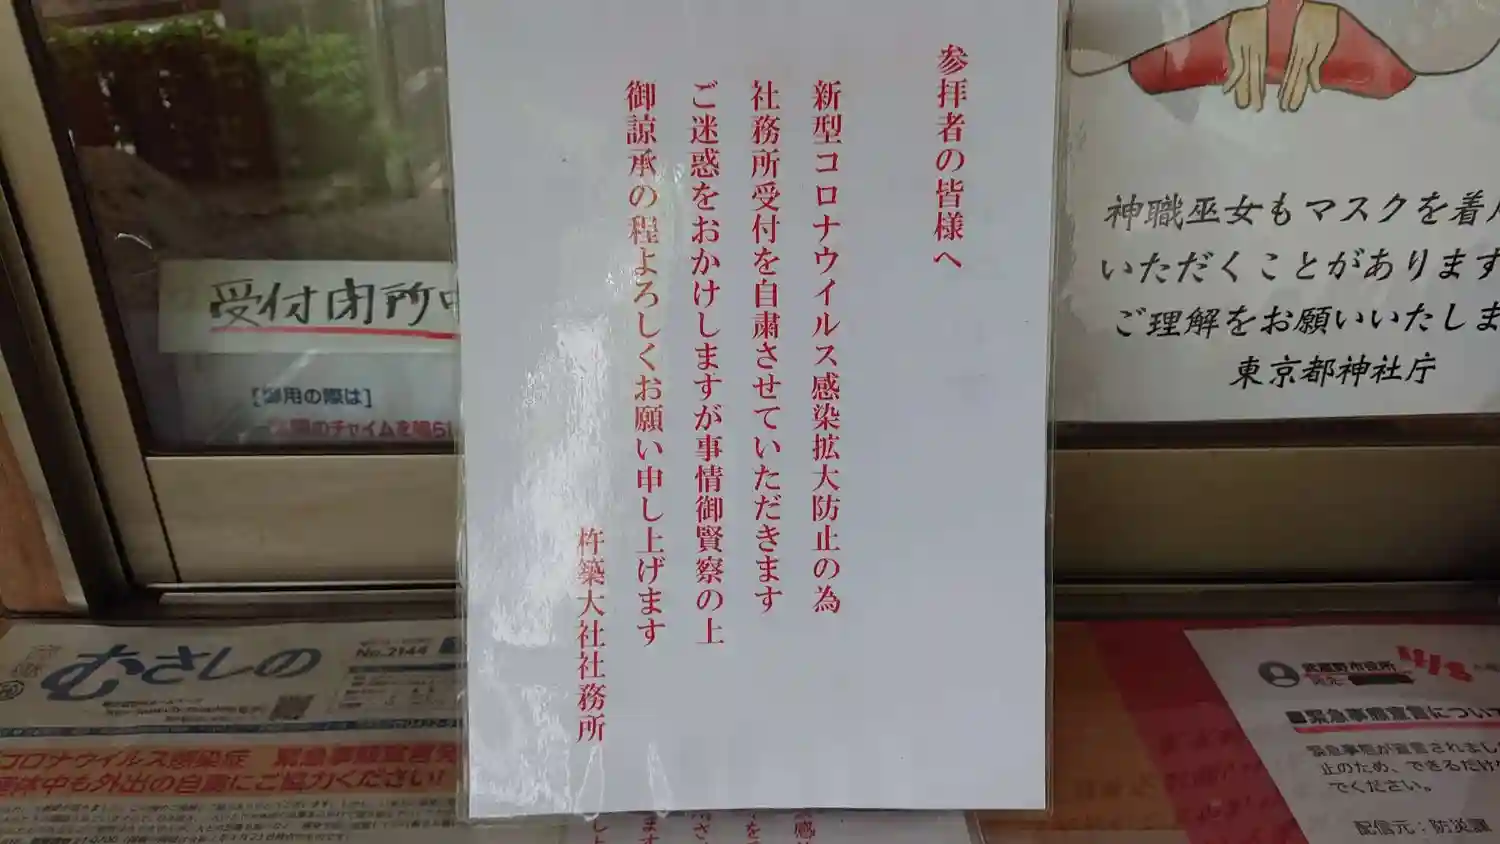 参拝者の皆様へ
新型コロナウイルス感染拡大防止の為
社務所受付を自粛させていただきます
ご迷惑をおかけしますが事情御賢察の上
御諒承の程よろしくお願い申し上げます
杵築大社社務所
受付閉所中
[御用の際は]
のチャイムを鳴ら
神職巫女もマスクを着
いただくことがあります
ご理解をお願いいたしま
東京都神社庁
むさしの
No.2144
コロナウイルス感染症 緊急事態宣言
連休中も外出の自粛にご協力ください!
武蔵野市役所
■緊急事態宣言につい
緊急事態が宣言されまし
止のため、できるだけ
でください。
配信元:防災課